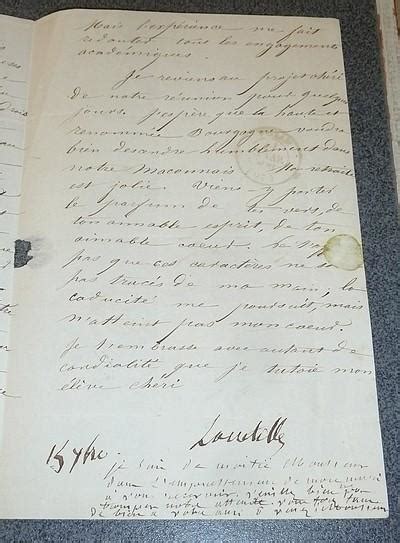 Mais l'expérience me fait
redouter tous les engagements
académiques.
Je reviens au projet chéri
de notre réunion pour quelques
jours. J'espère que la haute et
renommée Bourgogne voudra
bien descendre humblement dans
notre Maconnais. Ma retraite
est jolie. Viens-y porter
le parfum de tes vers, de
ton aimable esprit, de ton
aimable coeur. Ne
pas que ces caractères ne
pas tracés de ma main; la
caducité me poursuit, mais
n'atteint pas mon coeur.
Je t'embrasse avec autant de
cordialité que je tutoie mon
élève chéri
15 9bre
je suis de moitié Monsieur
dans l'empressement de mon mari
à vous recevoir, veuillez bien
tromper notre attente
de bien à votre ami à Monsieur